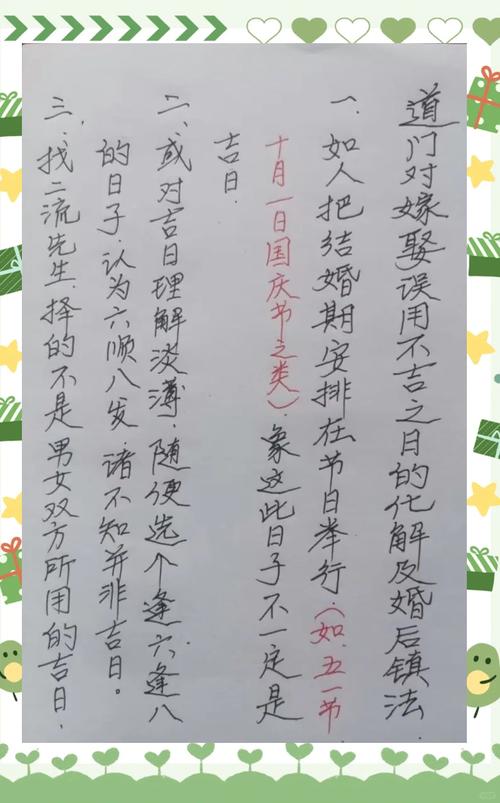 道门对嫁娶误用不吉之日的化解及婚后镇法.
一.如人把结婚期安排在节日举行(如.五一节
十月一日国庆节之类).象这此日子不一定是
吉日.
二、或对吉日理解淡薄.随便选个逢六.逢八
的日子.认为六顺八发.诸不知并非吉日。
三.找二流先生.择的不是男女双方所用的吉日,